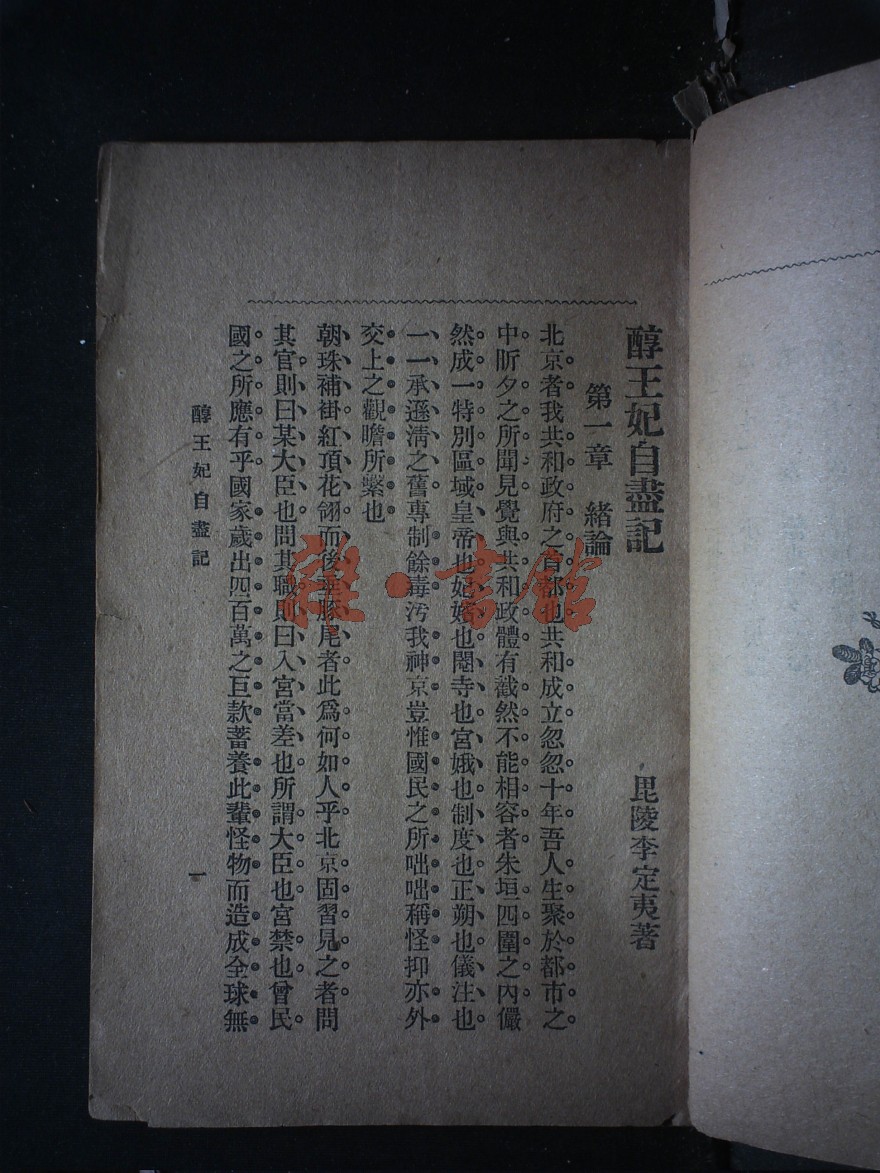 醇王妃自盡記
毘陵李定夷著
第一章　緒論
北京者我共和政府之首都也共和成立忽忽十年吾人生聚於都市之
中昕夕之所聞見覺與共和政體有截然不能相容者朱垣四圍之內儼
然成一特別區域皇帝也妃嬪也閹寺也宮娥也制度也正朔也儀注也
一一承遜清之舊專制餘毒污我神京豈惟國民之所咄咄稱怪抑亦外
交上之觀瞻所繫也
朝珠補褂紅頂花翎而後垂豚尾者此爲何如人乎北京固習見之者問
其官則曰某大臣也問其職則曰入宮當差也所謂大臣也宮禁也曾民
國之所應有乎國家歲出四百萬之巨款蓄養此輩怪物而造成全球無
醇王妃自盡記
一
雜·書館